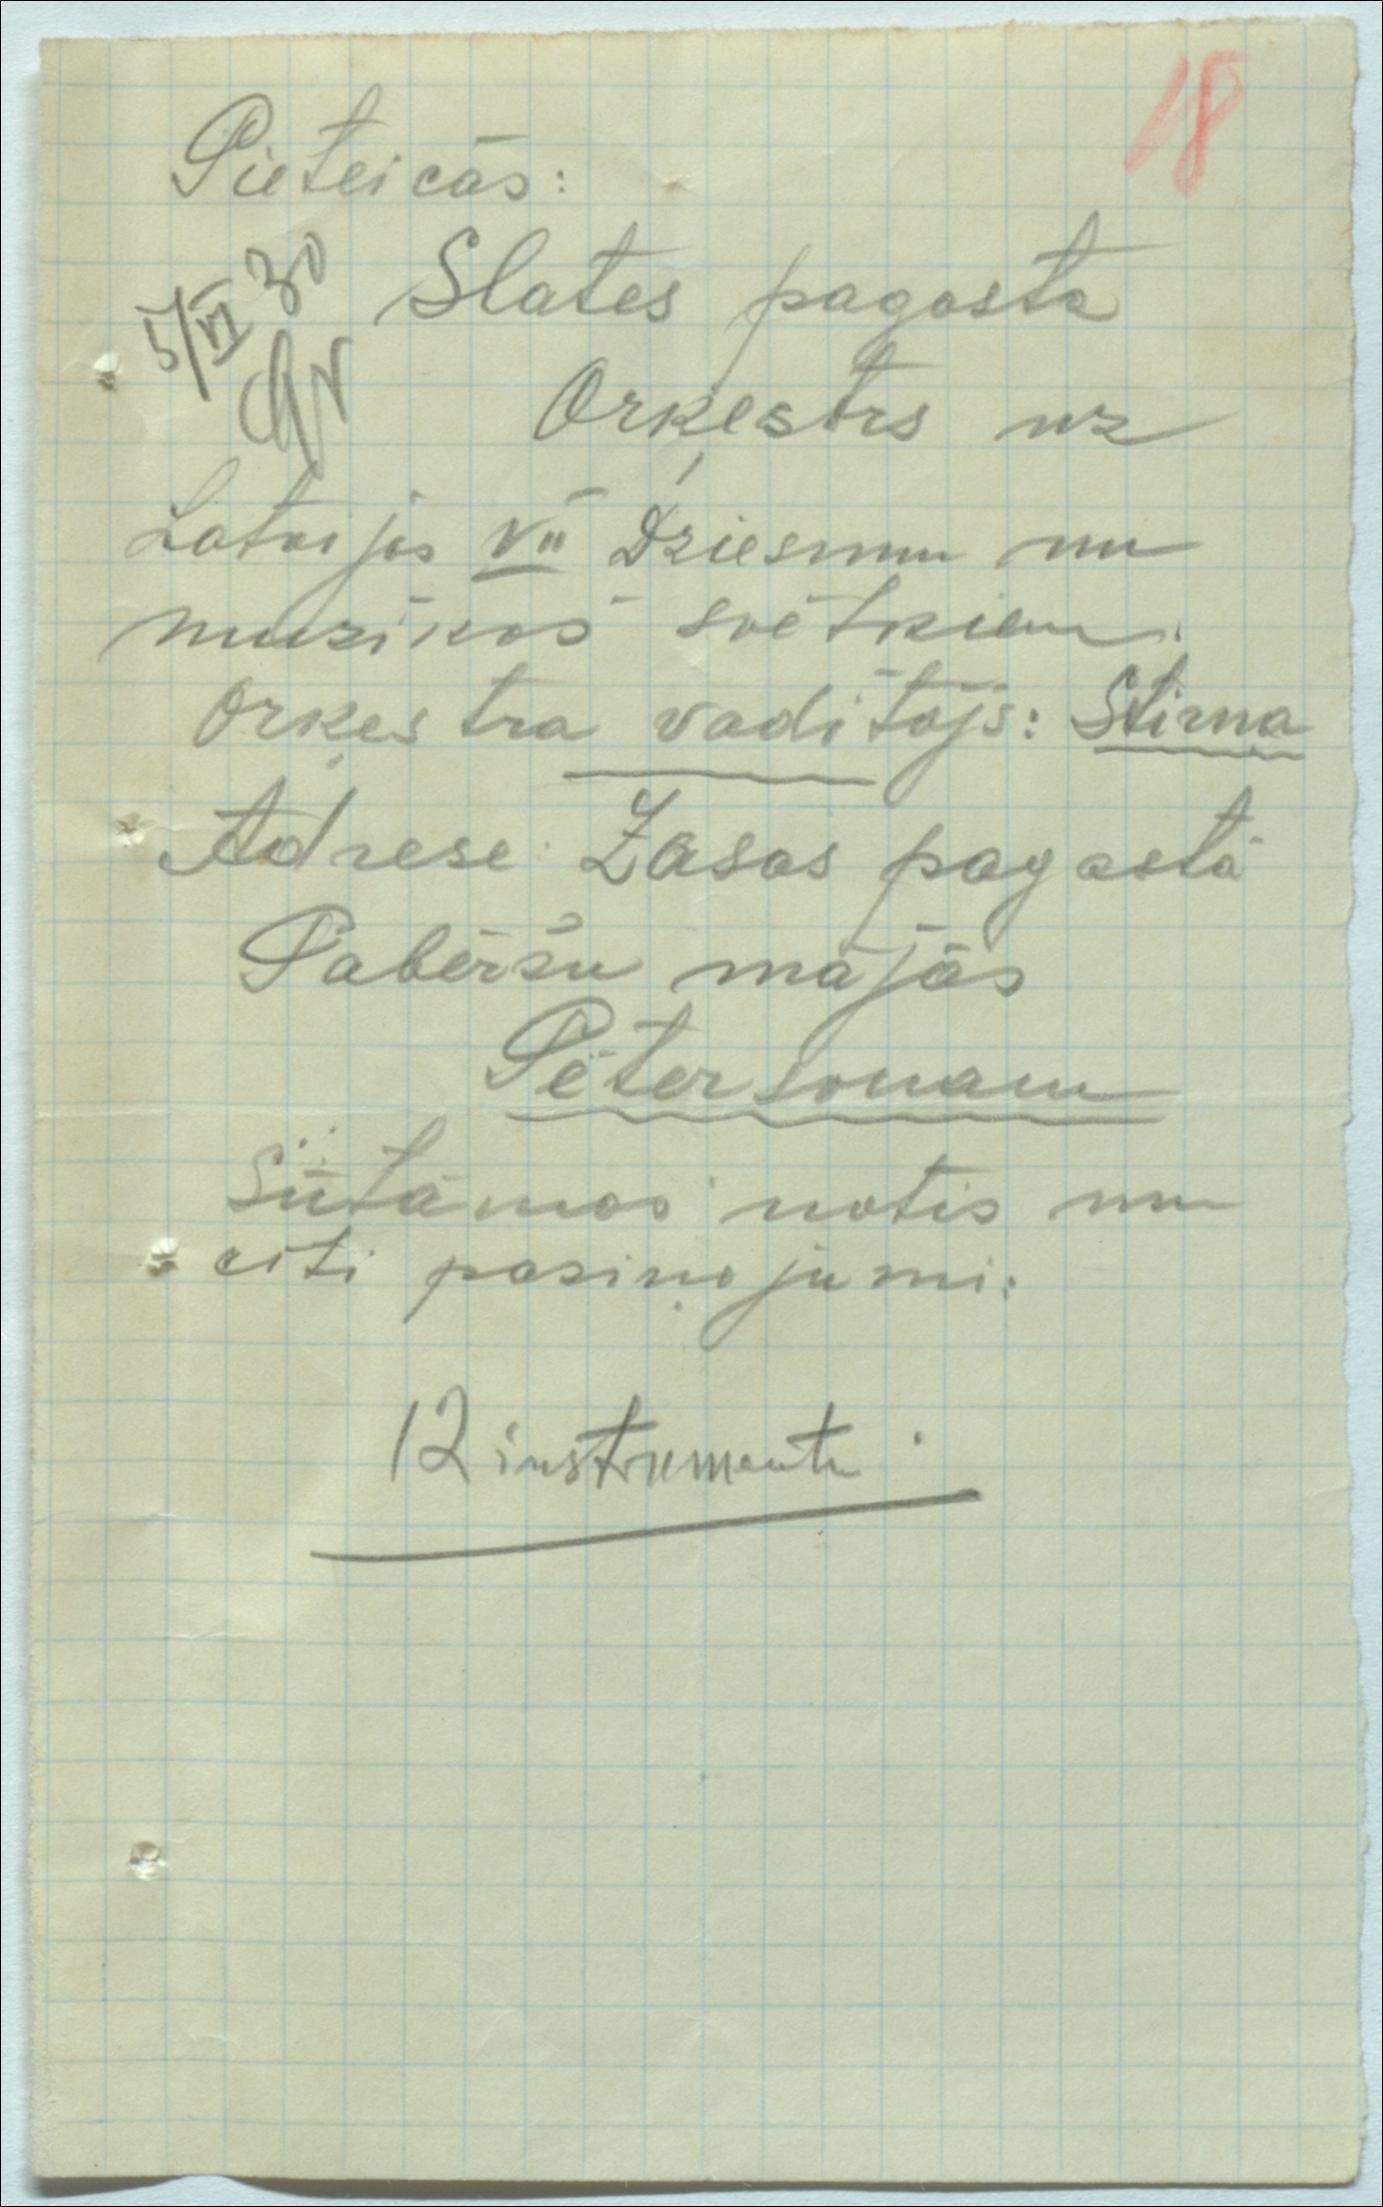 18
Pieteicās:
5/VI 30
Slates pagasta
Orķestrs uz
Latvijas VII Dziesmu un
muzikas svētkiem.
Orķestra vadītājs: Stirna
Adrese: Zasas pagastā
Pabēržu mājās
Pētersonam
Sūtāmas notis un
citi paziņojumi:
12 instrumenti